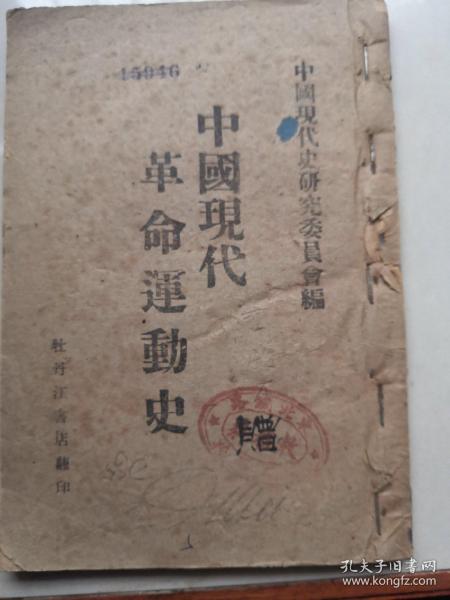 15946
中國現代史研究委員會編
中國現代
革命運動史
牡丹江書店翻印
贈
孔夫子旧书网
www.kongfz.com